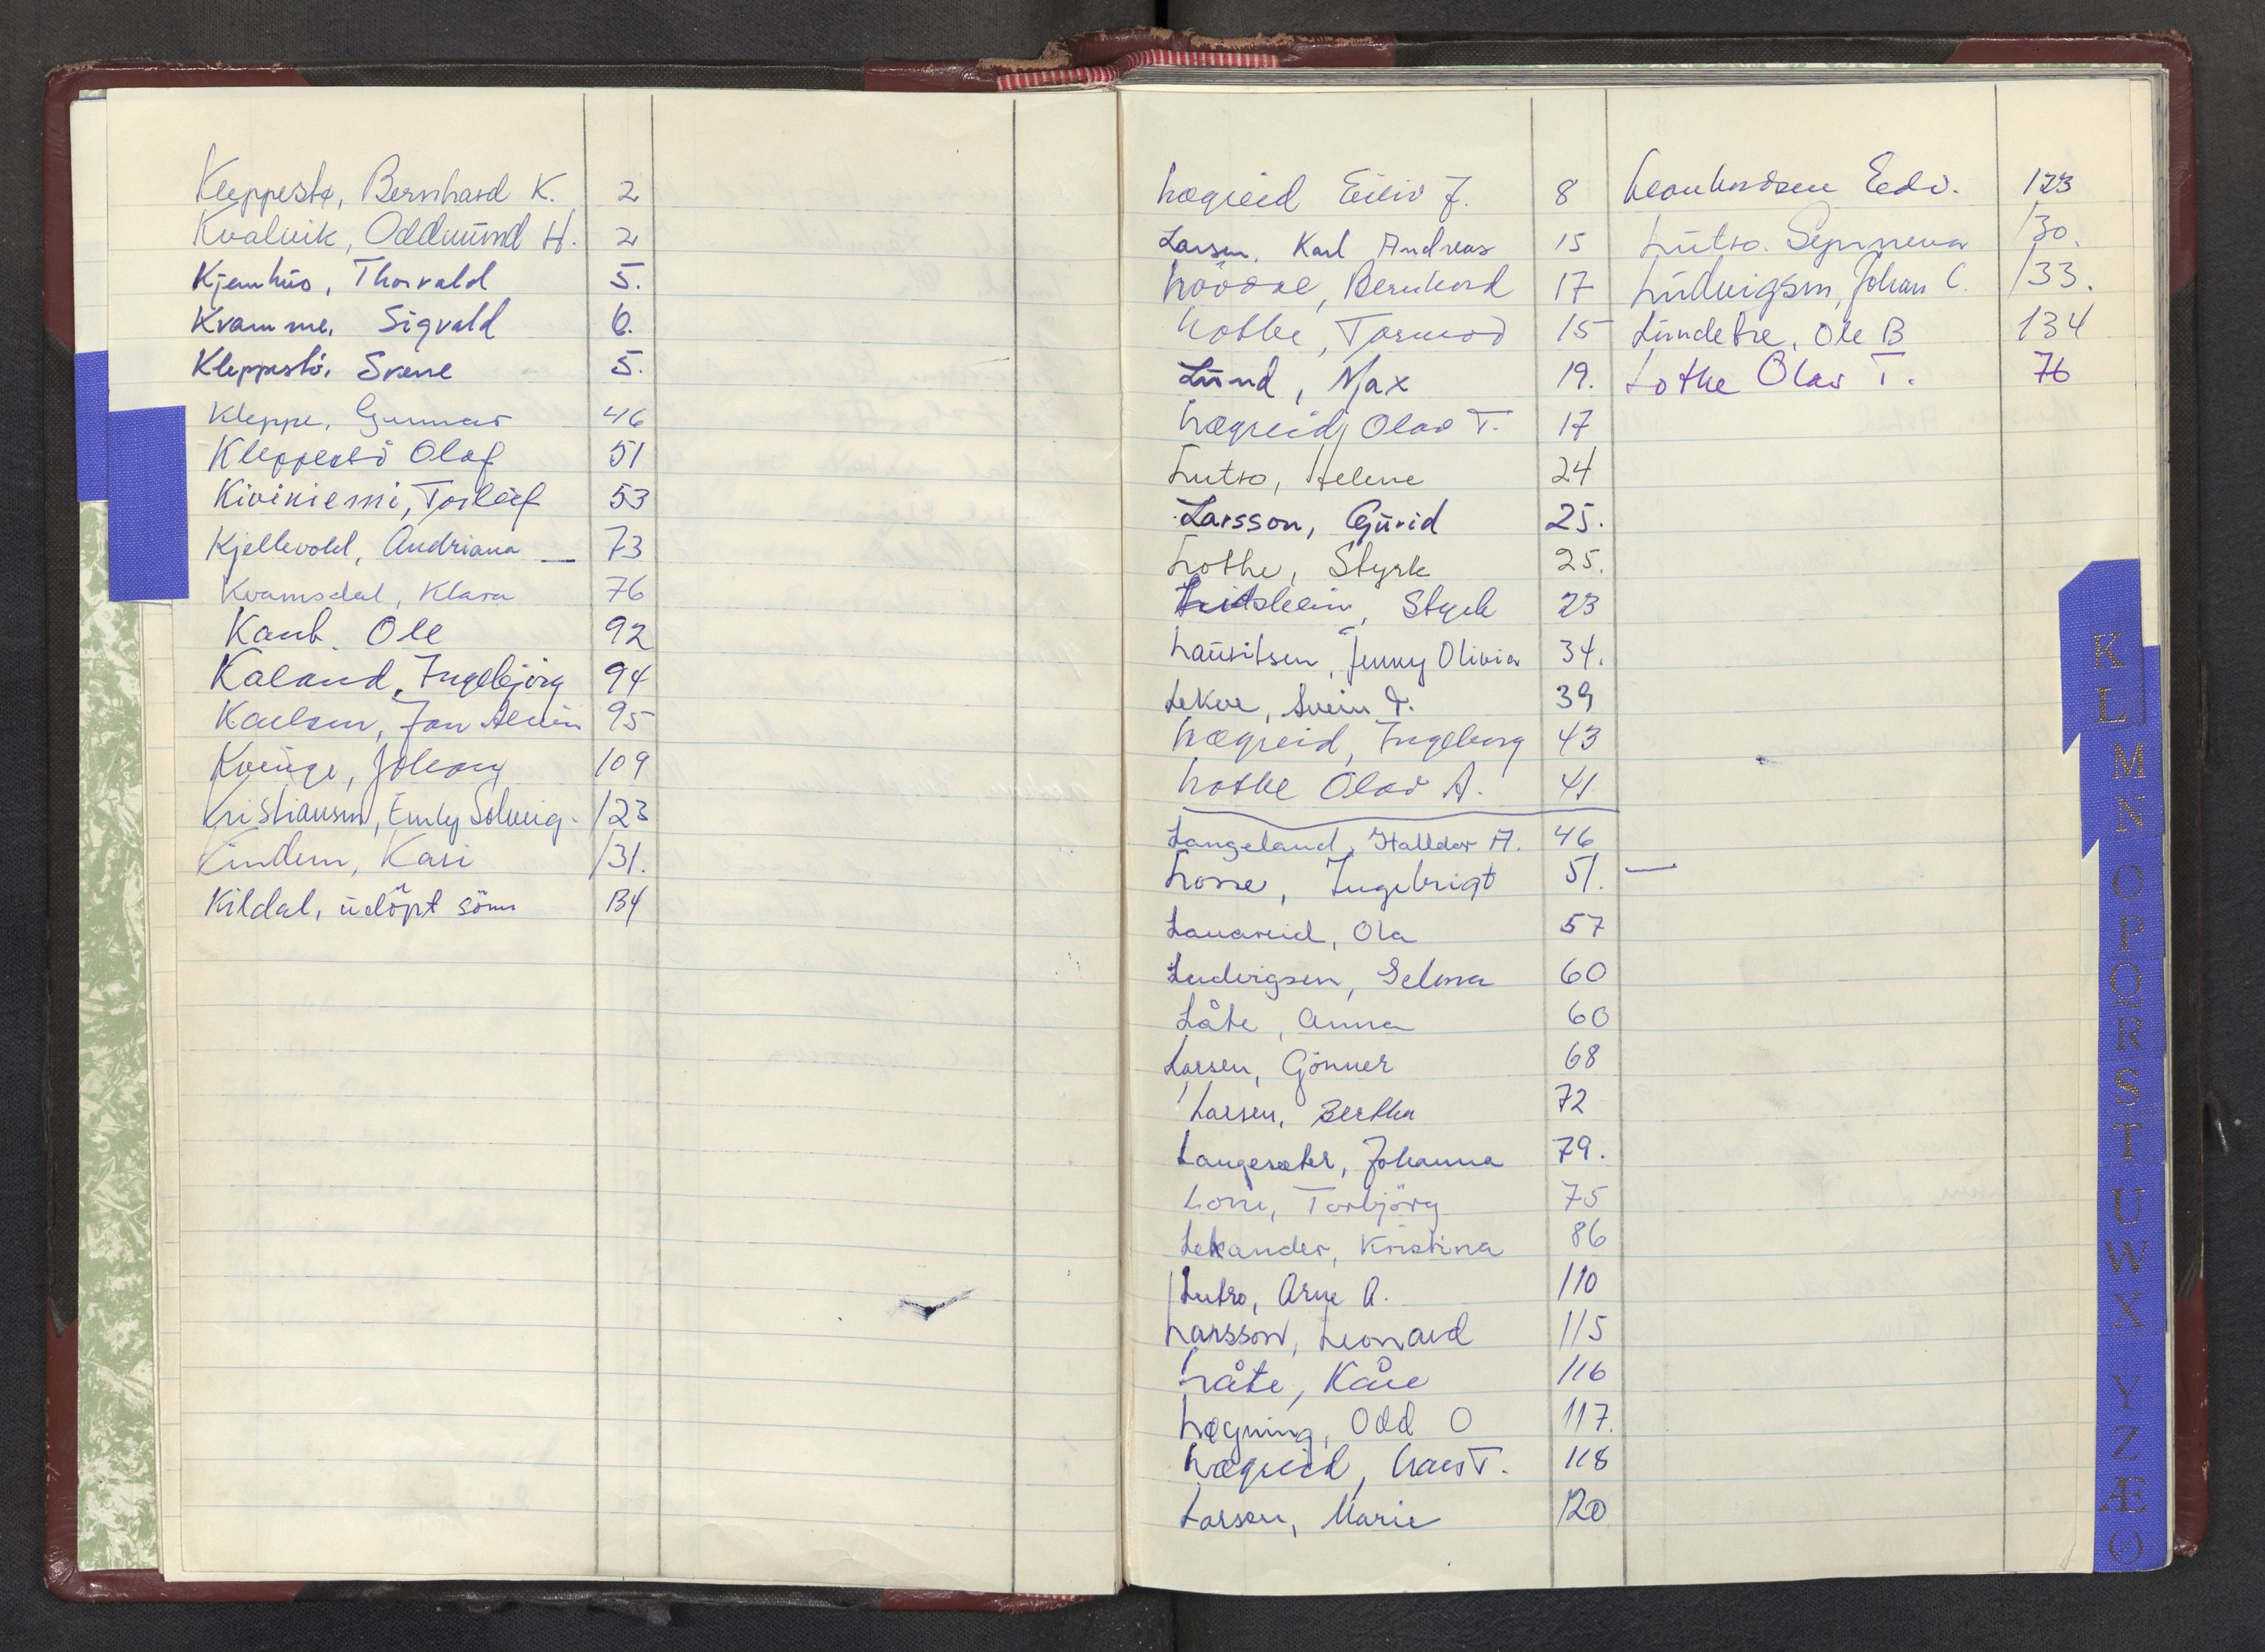 Kleppestø, Bernhard K. 2
Kvalvik, Oddmund H. 2
Kjemhus, Thorvald 5.
Kvamme, Sigvald 6.
Kleppestö, Svene 5.
Kleppe, Gunnar 46
Kleppestö Olaf 51
Kiviniemi, Torleif 53
Kjellevold, Andriana — 73
Kvamsdal, Klara 76
Ole 92
Kaland, Ingebjörg 94
Karlsen, Jan 95
Kvinge, Johan 109
Kristiansen, Emly Solveig. 123
Kindem, Kari 131.
Kildal, udöpt sönn 134
Lægreid Eiliv J. 8
Larsen, Karl Andreas 15
Bernhard 17
Lothe, Tormod 15
Lund, Max 19.
Lægreid, Olav T. 17
Lutro, Helene 24
Larsson, Gurid 25.
Lothe, Styrk 25.
Styrk 23
Lauritsen, Jenny Olivia 34.
Lekve, Svein 39
Lægreid, Ingeborg 43
Lothe Olav A. 41
Langeland, Halldor A. 46
Lone, Ingebrigt 51. —
Lanareid, Ola 57
Ludvigsen, Selma 60
Låte, Anna 60
Larsen, Gönner 68
Larsen, Bertha 72
Langesæter, Johanna 79.
Lone, Torbjörg 75
Lekander, Kristina 86
Lutro, Arne A. 110
Larsson, Leonard 115
Låte, Kåre 116
Lægning, Odd O 117.
Lægreid, Lars T. 118
Larsen, Marie 120
Leonhardsen Edv. 123
Lutro. Synneva 130.
Ludvigsen, Johan C. 133.
Lundetræ, Ole B 134
Lothe Olav T. 76
K
L
M
N
O
P
Q
R
S
T
U
W
X
Y
Z
Æ
Ø